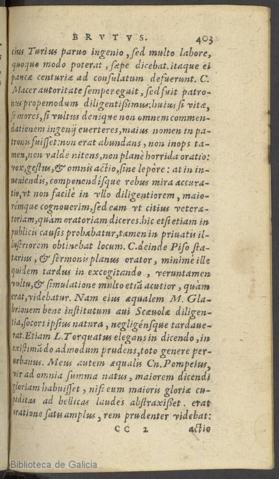 BRVTVS. 403
cius Turius paruo ingenio, sed multo labore,
quoquo modo poterat, sæpe dicebat. itaque ei
paucæ centuriæ ad consulatum defuerunt. C.
Macer autoritate semper eguit, sed fuit patro-
nus propemodum diligentissimus: huius si vita,
si mores, si vultus denique non omnem commen-
dationem ingenij euerteret, maius nomen in pa-
tronis fuisset: non erat abundans, non inops ta-
men, non valde nitens, non planè horrida oratio:
vox, gestus, & omnis actio, sine lepore: at in in-
ueniendis, componendisque rebus mira accura-
tio, vt non facilè in vllo diligentiorem, maio-
remque cognouerim, sed eam vt citius vetera-
toriam, quàm oratoriam diceres. hic etsi etiam in
publicis causis probabatur, tamen in priuatis il-
lustriorem obtinebat locum. C. deinde Piso sta-
tarius, & sermonis planus orator, minimè ille
quidem tardus in excogitando, veruntamen
voltu, & simulatione multo etiã acutior, quàm
erat, videbatur. Nam eius æqualem M. Gla-
brionem bene institutum aui Scæuolæ diligen-
tia, socors ipsius natura, negligénsque tardaue-
rat. Etiam L. Torquatus elegans in dicendo, in
existimãdo admodum prudens, toto genere per-
urbanus. Meus autem æqualis Cn. Pompeius,
vir ad omnia summa natus, maiorem dicendi
gloriam habuisset, nisi eum maioris gloriæ cu-
piditas ad bellicas laudes abstraxisset. erat
oratione satis amplus, rem prudenter videbat:
CC 2 actio
Biblioteca de Galicia